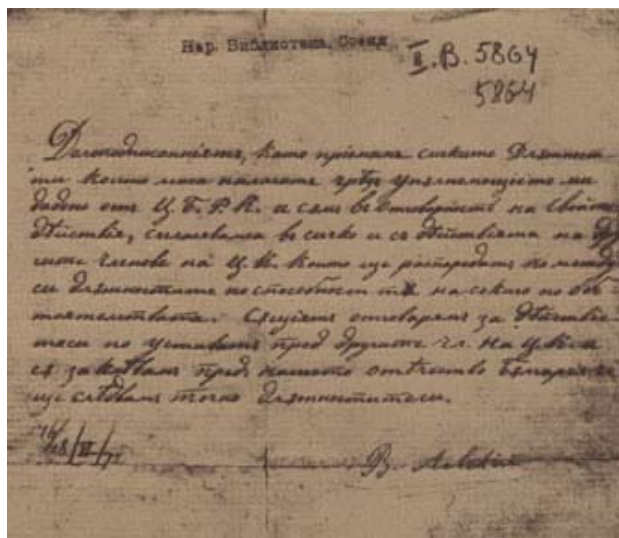 Нар. Библиотека, София
II. В. 5864
5864
Долоподписанниятъ, като приемамъ сичките длъжнос
ти които ми налагатъ пълномощието ми
дадно отъ Ц. Б. Р. К. и самъ въ отговорность на своите
действия, съгласявамъ въ сичко и съ действията на дру
гите членове на Ц. К. които ще распоредятъ помежду
си длъжностите по способностьта на секиго по об-
тоятелствата.
отговарямъ за
по уставътъ пред другите чл. на Ц. К. и
ся заклевамъ предъ нашето отечество България че
ще следвамъ точно длъжностите си.
16/28/VI/72
В. Левскій